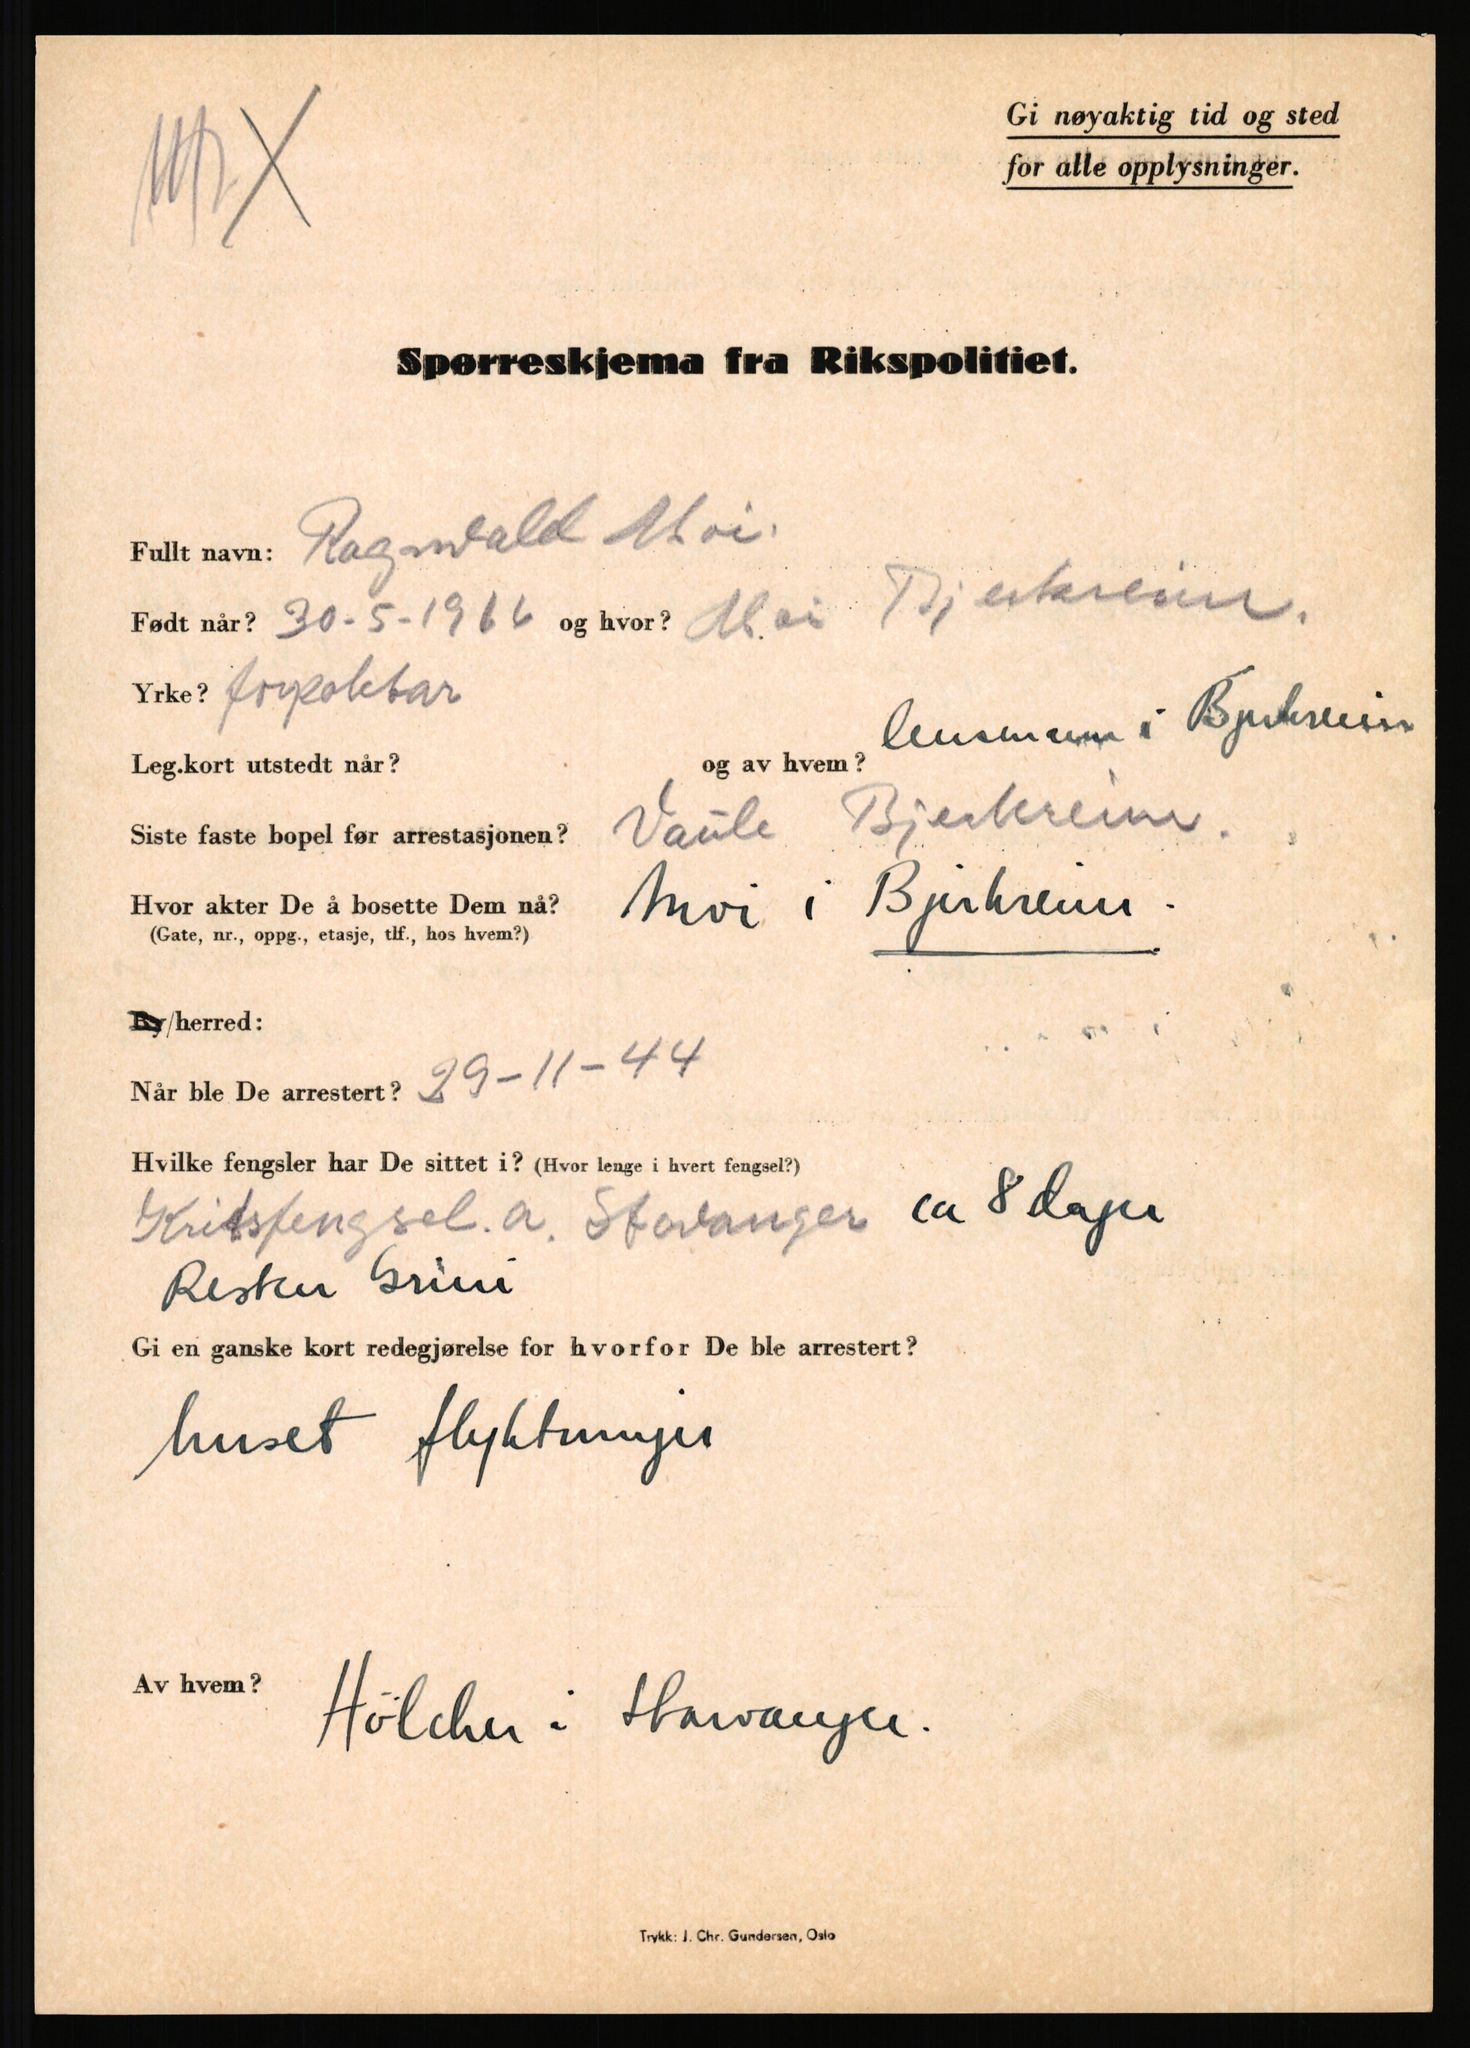 Gi nøyaktig tid og sted
for alle opplysninger.
X
Spørreskjema fra Rikspolitiet.
Fullt navn: Ragnvald Moi.
Født når? 30-5-1916 og hvor? Moi Bjerkreim.
Yrke? forpaktar
Leg.kort utstedt når? og av hvem? lensmann i Bjerkreim
Siste faste bopel før arrestasjonen? Vaule Bjerkreim.
Hvor akter De å bosette Dem nå? Moi i Bjerkreim.
(Gate, nr., oppg., etasje, tlf., hos hvem?)
By/herred:
Når ble De arrestert? 29-11-44
Hvilke fengsler har De sittet i? (Hvor lenge i hvert fengsel?)
Kritsfengsel. a. Stavanger ca 8 dager
Resten Grini
Gi en ganske kort redegjørelse for hvorfor De ble arrestert?
huset flyktninger
Av hvem? Hölcher i Stavanger.
Trykk: J. Chr. Gundersen, Oslo